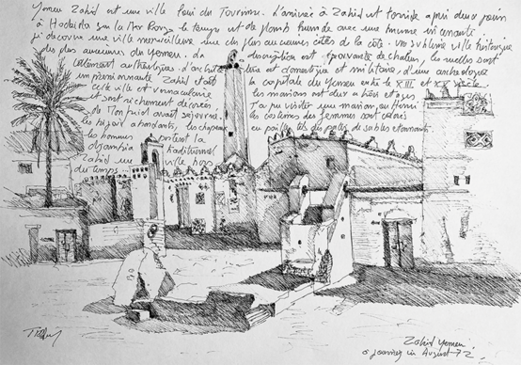 Yemen Zabid est une ville loin du Tourisme. L'arrivée à Zabid est torride après deux jours
à Hodeida sur la Mer Rouge le temps est de plomb humide avec une brume
je découvre une ville merveilleuse une des plus anciennes cités de la côte. Une sublime ville historique
des plus anciennes du Yemen. La éprouvante de chaleur, les ruelles sont
l'architecture et domestique et militaire, d'une archéologie
impressionnante Zabid était la capitale du Yemen entre le XIII et XV siècle.
cette ville est vernaculaire les maisons ont deux
sont richement décorés J'ai pu visiter une maison,
et avait séjourné. les costumes des femmes sont colorés
les bijoux abondants, les chapeaux en paille
les hommes portent la
djambia traditionnel
Zabid une ville hors
du temps
Zabid Yemen
journey in August 72